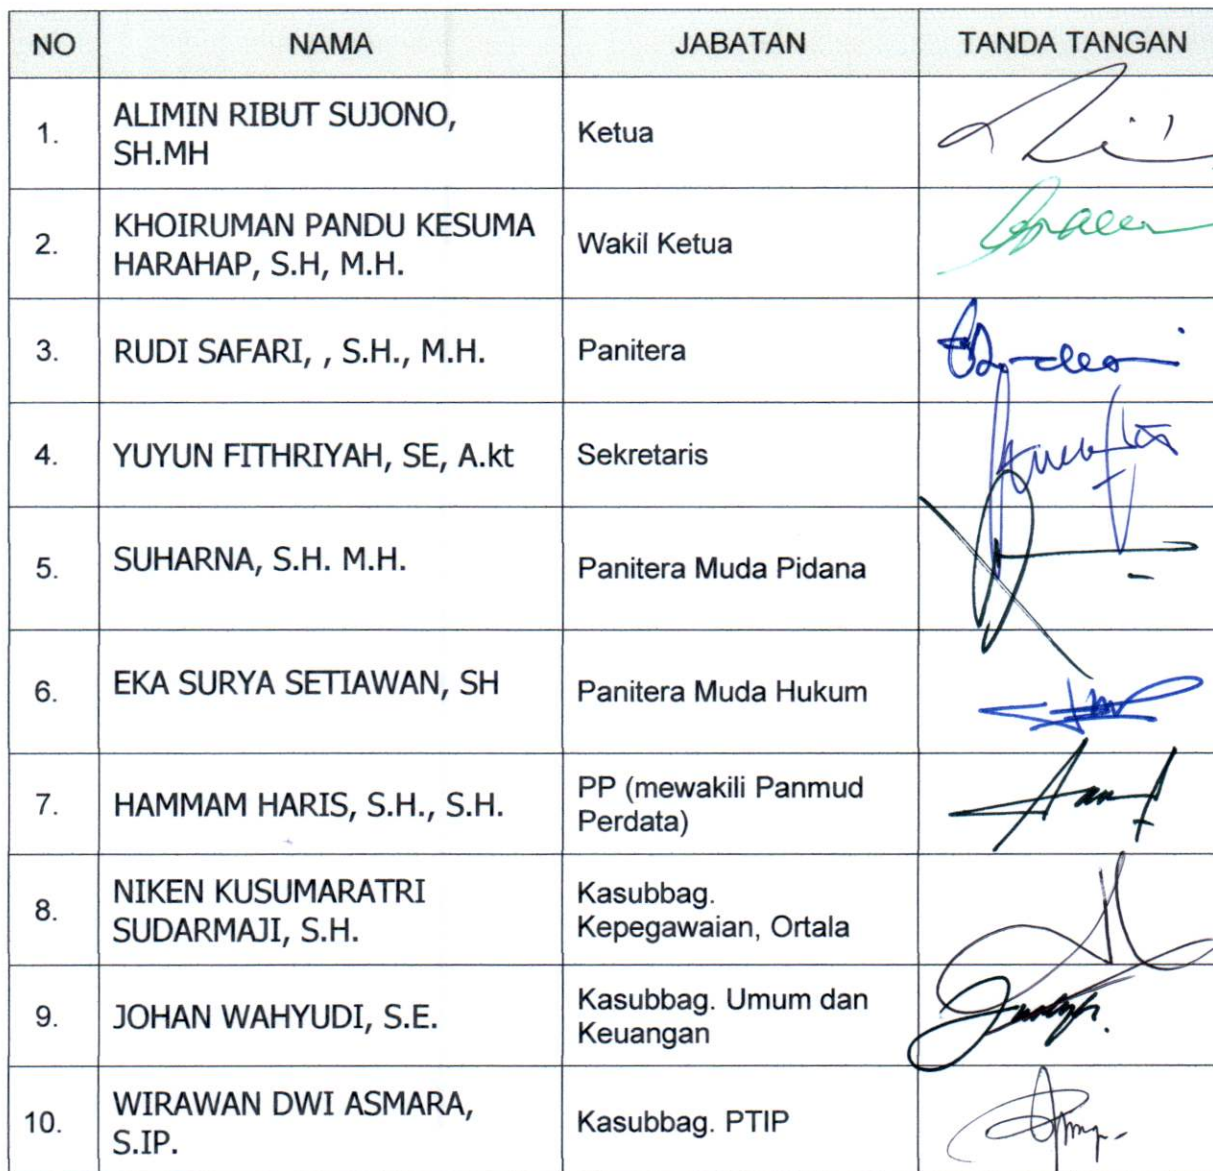 NO NAMA JABATAN TANDA TANGAN
1. ALIMIN RIBUT SUJONO,
SH.MH
Ketua
2. KHOIRUMAN PANDU KESUMA
HARAHAP, S.H, M.H.
Wakil Ketua
3. RUDI SAFARI, , S.H., M.H. Panitera
4. YUYUN FITHRIYAH, SE, A.kt Sekretaris
5. SUHARNA, S.H. M.H. Panitera Muda Pidana
6. EKA SURYA SETIAWAN, SH Panitera Muda Hukum
7. HAMMAM HARIS, S.H., S.H.
PP (mewakili Panmud
Perdata)
8. NIKEN KUSUMARATRI
SUDARMAJI, S.H.
Kasubbag.
Kepegawaian, Ortala
9. JOHAN WAHYUDI, S.E.
Kasubbag. Umum dan
Keuangan
10. WIRAWAN DWI ASMARA,
S.IP.
Kasubbag. PTIP